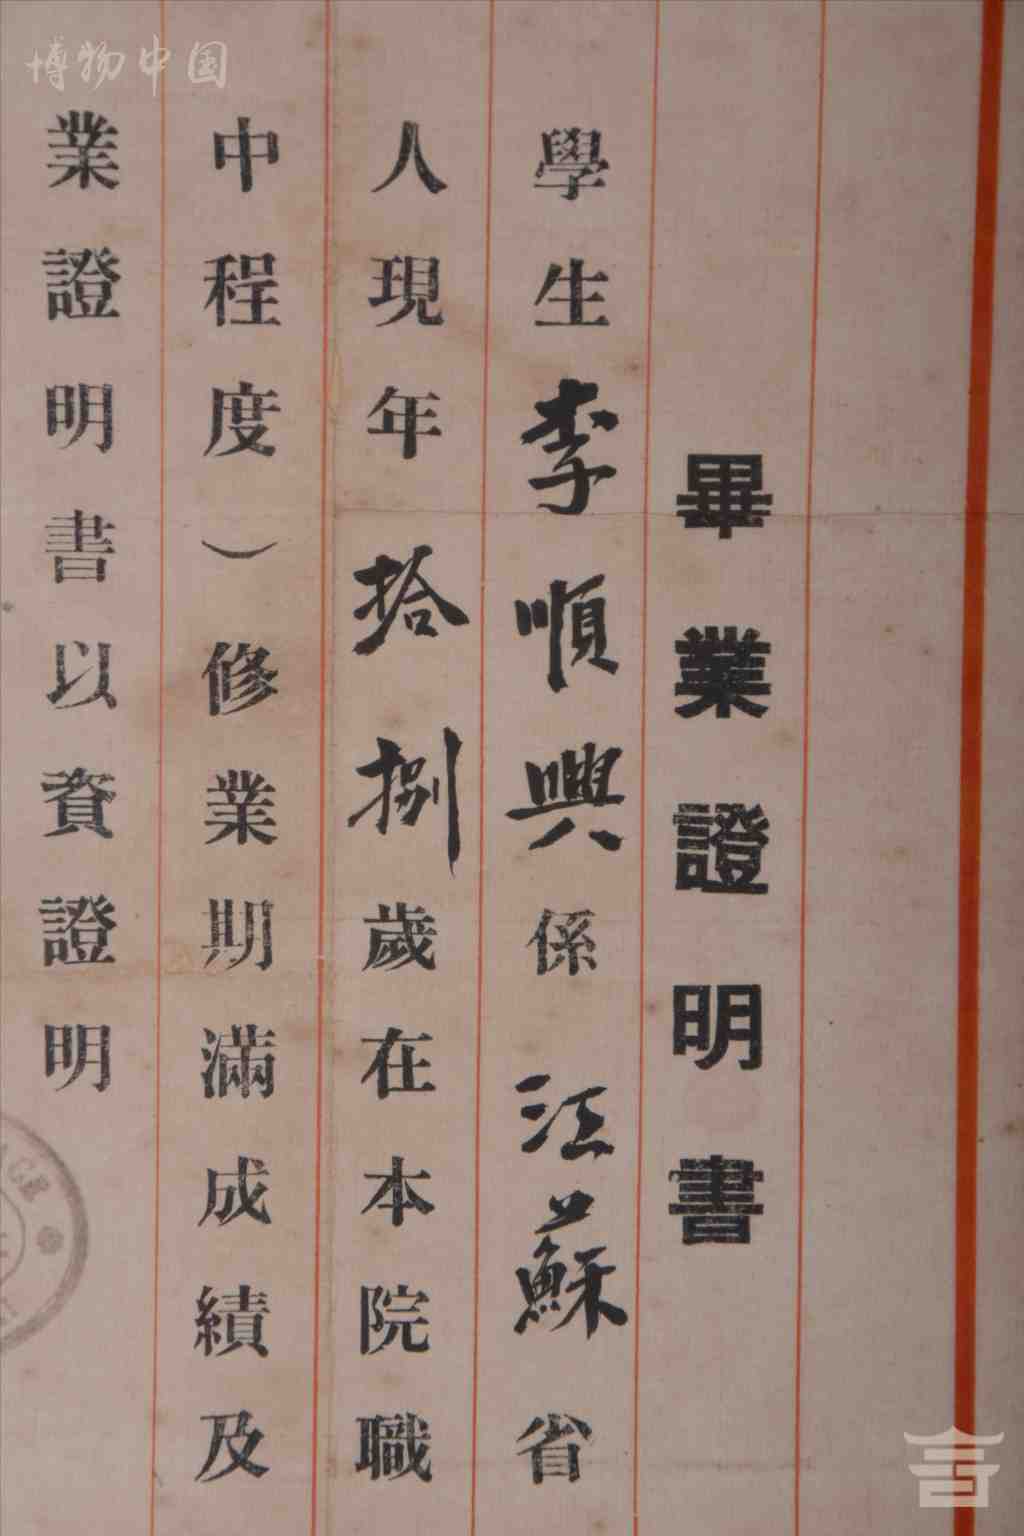 博物中国
畢業證明書
學生李順興係江蘇省
人現年拾捌歲在本院職
中程度）修業期滿成績及
業證明書以資證明